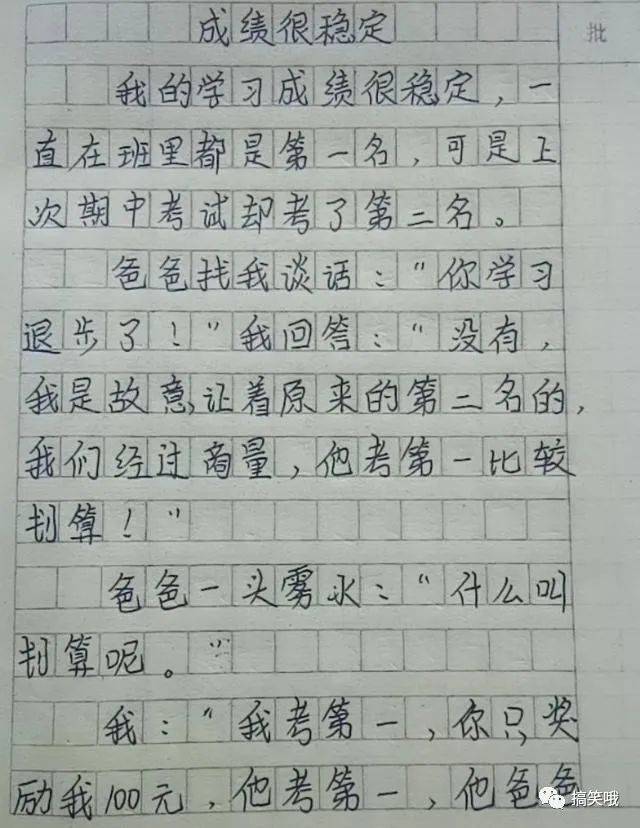 成绩很稳定
批
我的学习成绩很稳定，一
直在班里都是第一名，可是上
次期中考试却考了第二名。
爸爸找我谈话：“你学习
退步了！”我回答：“没有，
我是故意让着原来的第二名的，
我们经过商量，他考第一比较
划算！”
爸爸一头雾水：“什么叫
划算呢。”
我：“我考第一，你只奖
励我100元，他考第一，他爸爸
搞笑哦